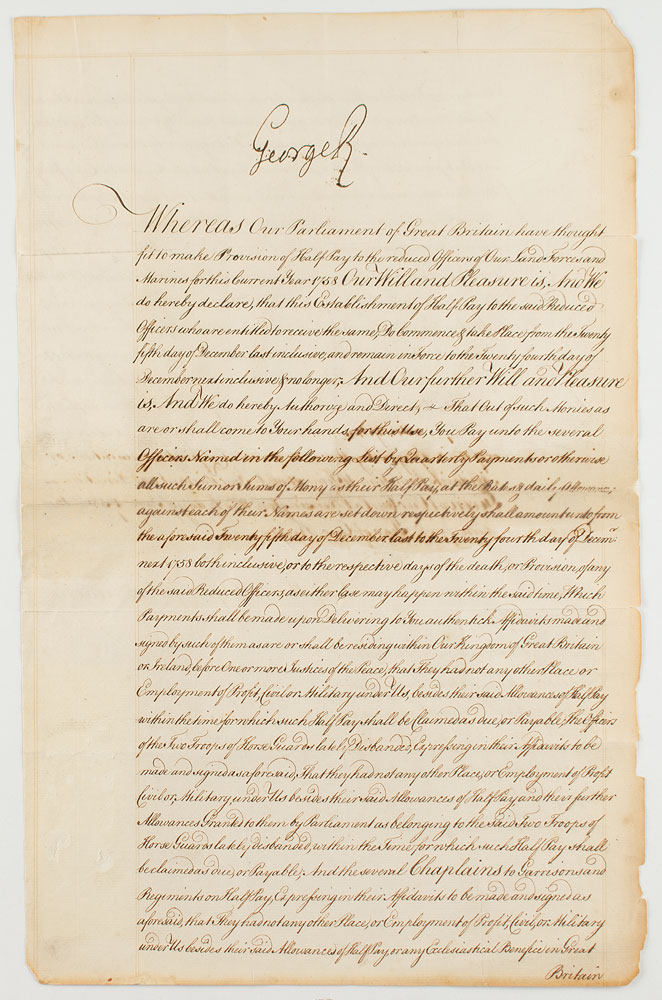 George R.
Whereas Our Parliament of Great Britain have thought
fit to make Provision of Half Pay to the reduced Officers of Our Land Forces and
Marines for this Current Year 1758 Our Will and Pleasure is, And We
do hereby declare, that this Establishment of Half Pay to the said Reduced
Officers who are entitled to receive the same, Do Commence & take Place, from the Twenty
fifth day of December last inclusive, and remain in Force to the Twenty fourth day of
December next inclusive & no longer, And Our further Will and Pleasure
is, And We do hereby Authorize and Direct, That Out of such Monies as
are or shall come to Your hands, for this Use, You Pay unto the several
Officers Named in the following List by Quarterly Payments or otherwise
all such Sum or Sums of Mony as their Half Pay, at the Rates & daily
against each of their Names are set down respectively shall amount unto from
the aforesaid Twenty fifth day of December last to the Twenty fourth day of Decem:r
next 1758 both inclusive, or to the respective days of the death, or Provision of any
of the said Reduced Officers, as either Case may happen within the said time, Which
Payments shall be made upon Delivering to You authentick Affidavits made and
signed by such of them as are or shall be residing within Our Kingdom of Great Britain
or Ireland, before One or more Justices of the Peace, that They had not any other Place or
Employment of Profit, Civil or Military under Us, besides their said Allowances of Half Pay
within the time for which such Half Pay shall be Claimed as due, or Payable, The Officers
of the Two Troops of Horse Guards lately Disbanded, Expressing in their Affidavits to be
made and signed as aforesaid, That they had not any other Place, or Employment of Profit
Civil or Military under Us besides their said Allowances of Half Pay and their further
Allowances Granted to them by Parliament as belonging to the said Two Troops of
Horse Guards lately disbanded, within the Time for which such Half Pay shall
be claimed as due, or Payable, And the several Chaplains to Garrisons and
Regiments on Half Pay, Expressing in their Affidavits to be made and signed as
aforesaid, that They had not any other Place, or Employment of Profit, Civil, or Military
under Us besides their said Allowances of Half Pay, or any Eclesiastical Benefice in Great
Britain